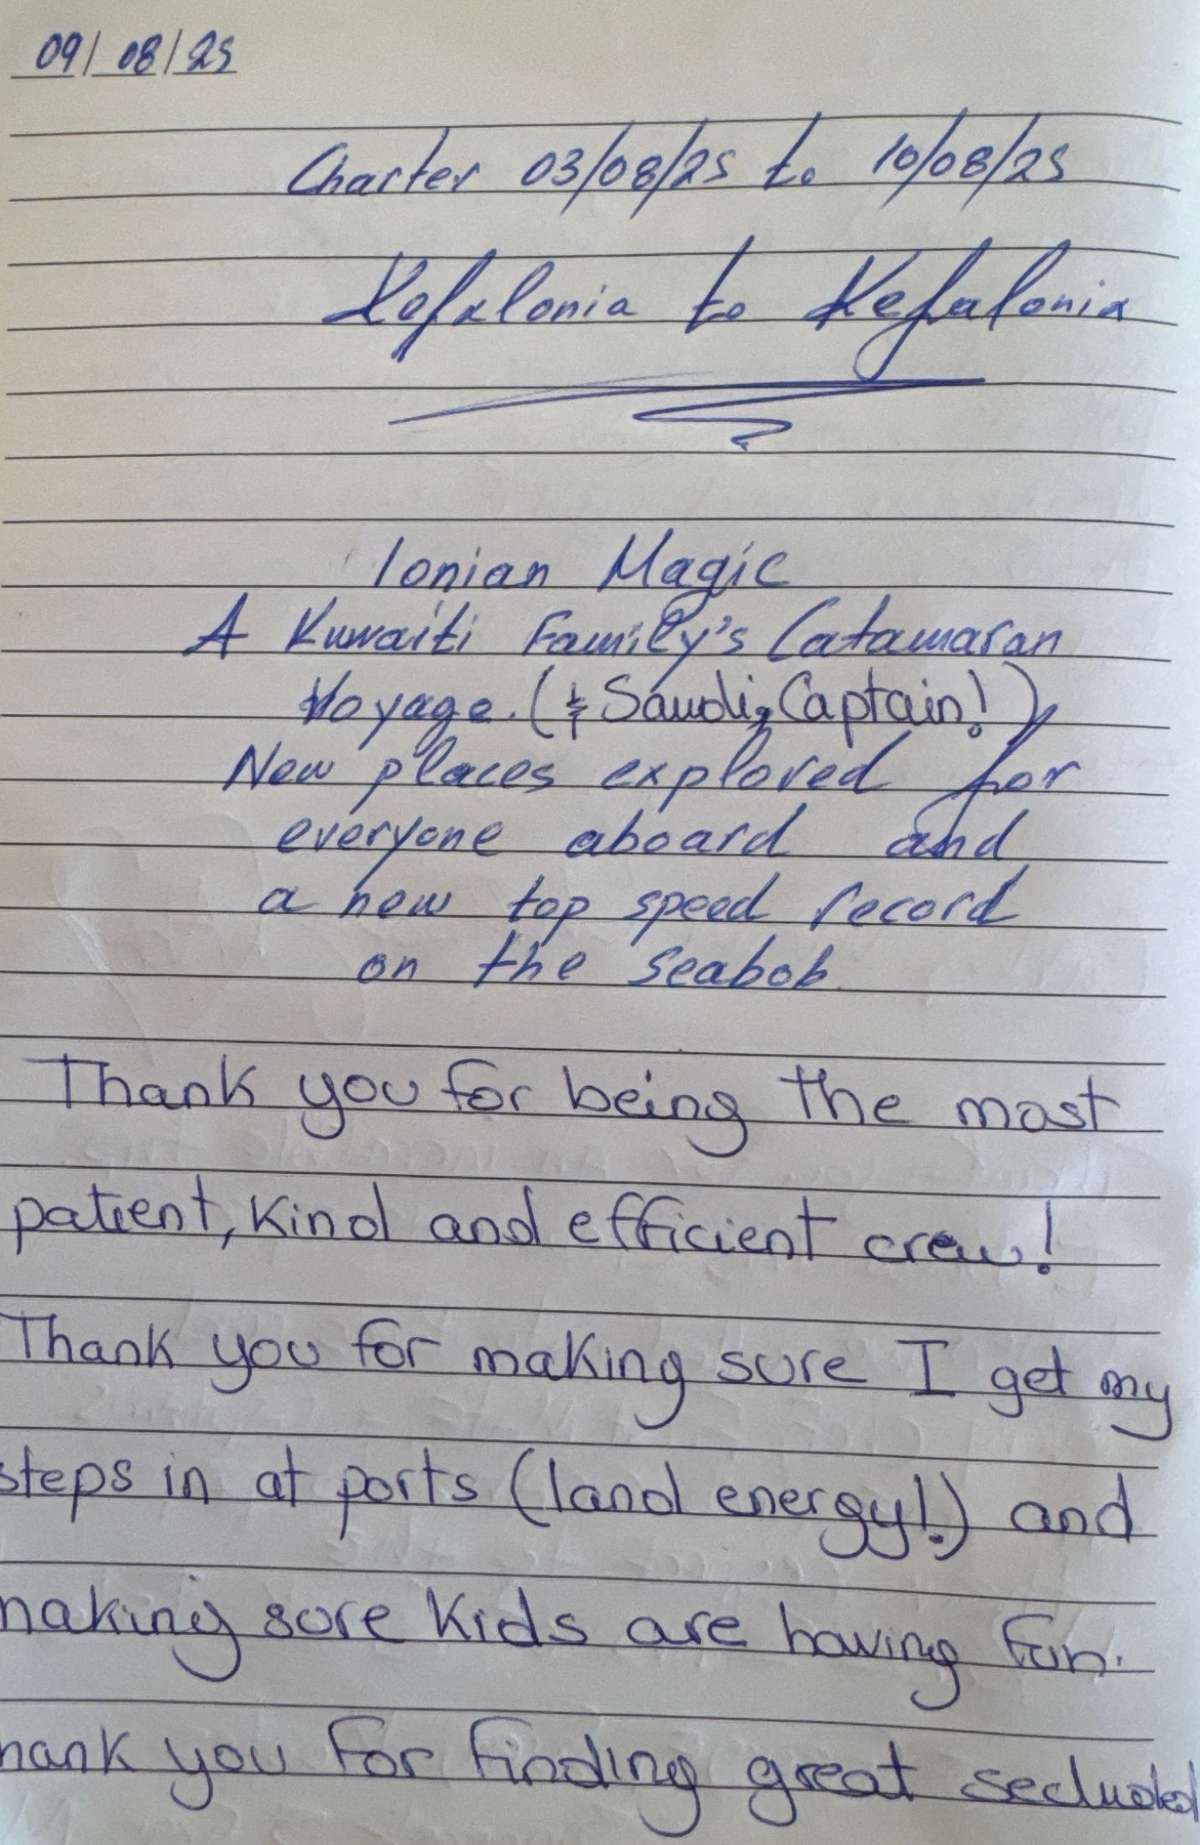 09/08/25
Charter 03/08/25 to 10/08/25
Kefalonia to Kefalonia
Ionian Magic
A Kuwaiti Family's Catamaran
Voyage. (& Saudi, Captain!)
New places explored for
everyone aboard and
a new top speed record
on the seabob.
Thank you for being the most
patient, kind and efficient crew!
Thank you for making sure I get my
steps in at ports (land energy!) and
making sure kids are having fun.
hank you for finding great secluded